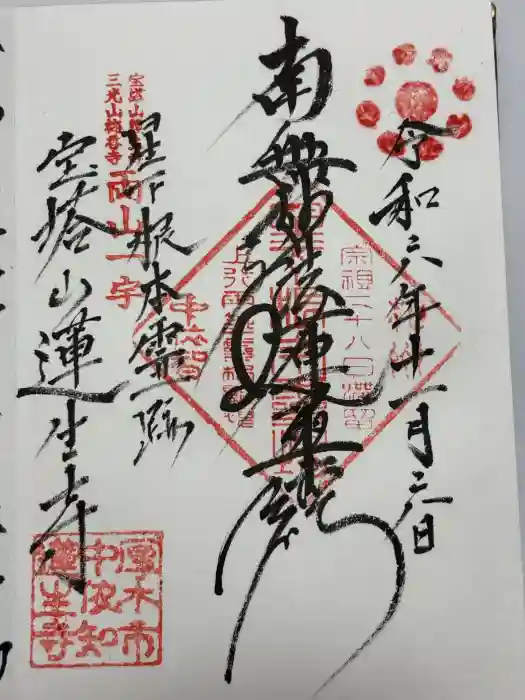 令和六年十一月三日
南無妙法蓮華経
宗祖二十八日滞留
星下根本霊跡
宝塔山
三光山梅香寺
両山一寺
宝塔山蓮生寺
厚木市
中依知
蓮生寺